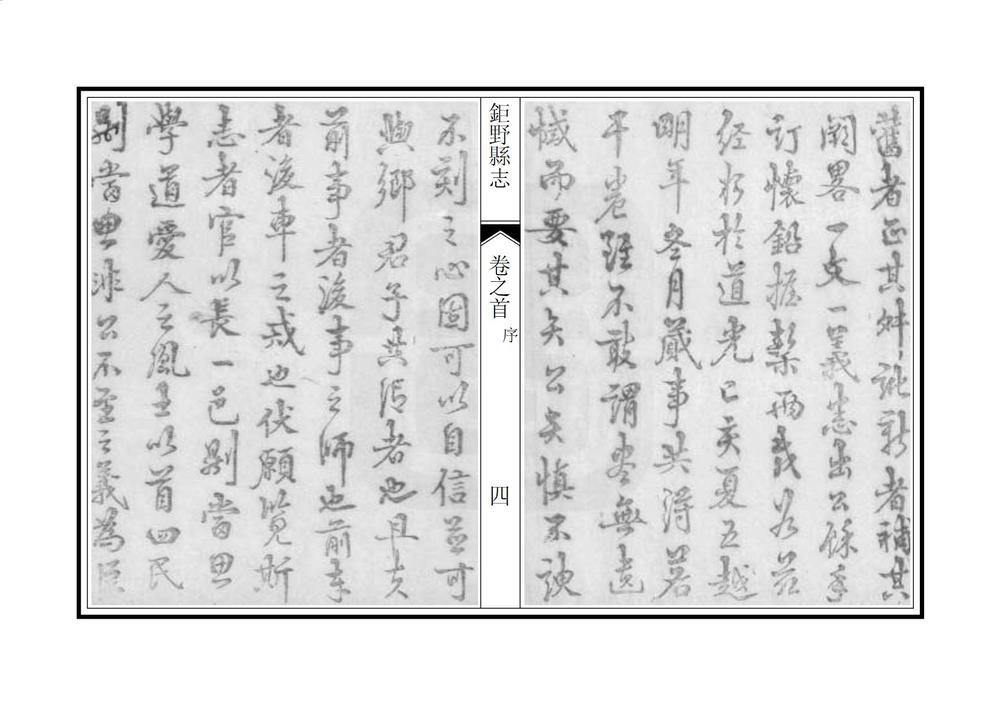 舊者正其舛訛新者補其
闕畧一文一義悉出公餘手
訂懷鉛握槧兩載於茲
經始於道光己亥夏五越
明年冬月蕆事共得若
干卷雖不敢謂盡無遺
憾而要其矢公矢慎不諛
鉅野縣志
卷之首
序
四
不刻之心固可以自信並可
與鄉君子共信者也且夫
前事者後事之師也前車
者後車之戒也伏願覽斯
志者官以長一邑則當思
學道愛人之風士以首四民
則當思非公不至之義為